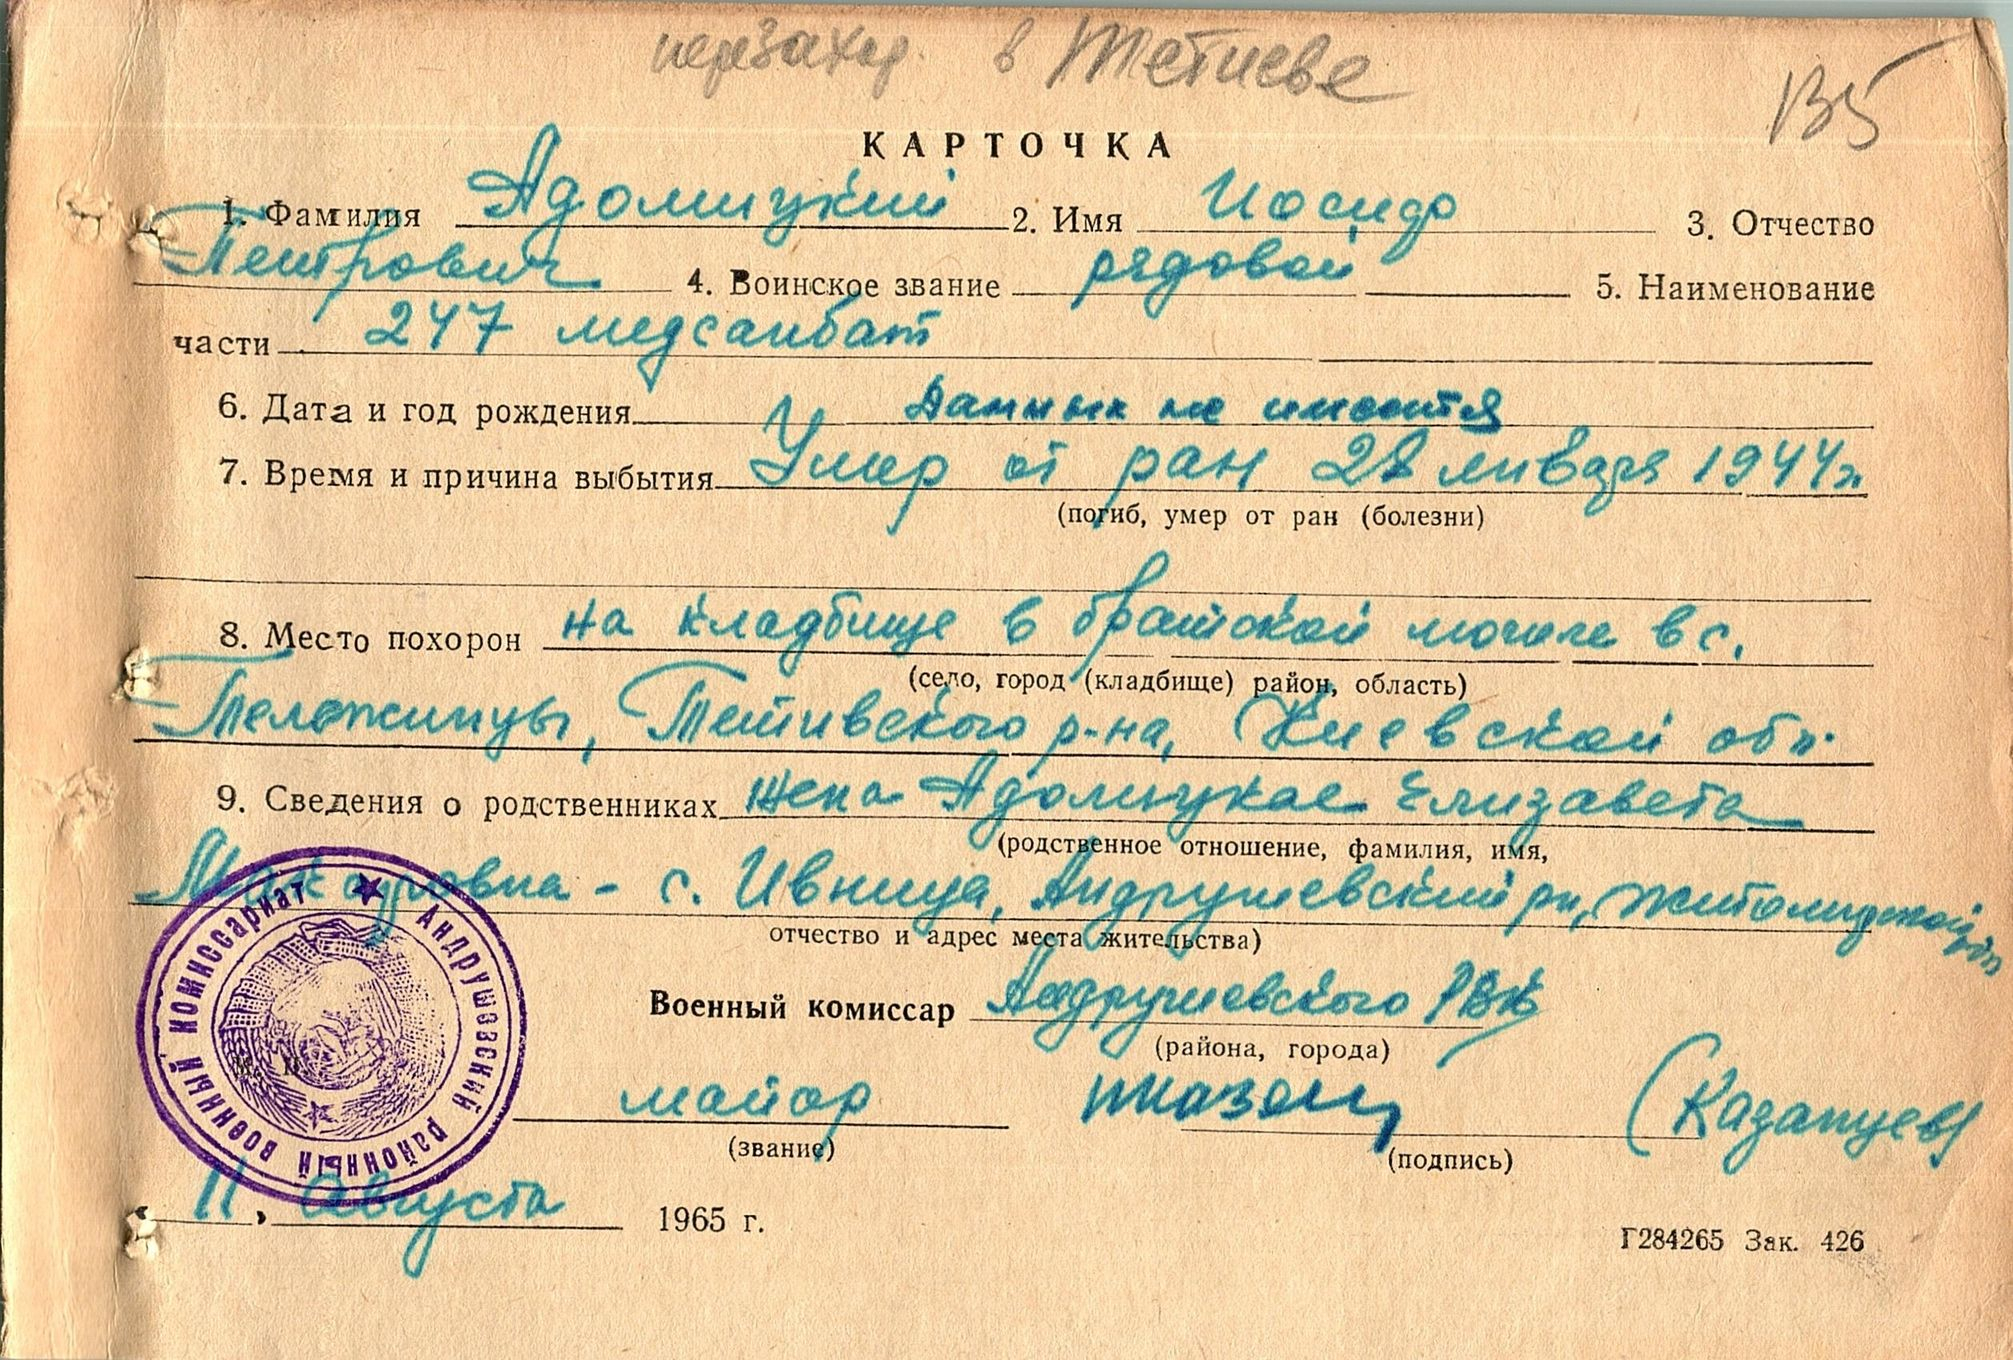 перезахор. в Тетиеве
КАРТОЧКА
1. Фамилия Адомицкий 2. Имя Иосифр 3. Отчество
Петрович 4. Воинское звание рядовой 5. Наименование
части 247 медсанбат
6. Дата и год рождения Данных не имеется
7. Время и причина выбытия Умер от ран 28 января 1944 г.
(погиб, умер от ран (болезни)
8. Место похорон на кладбище в братской могиле в с.
(село, город (кладбище) район, область)
Теложинцы, Тетивского р-на, Киевской обл.
9. Сведения о родственниках жена Адомицкая Елизавета
(родственное отношение, фамилия, имя,
Макаровна - с. Ивница, Андрушевский рн, Житомирской обл
отчество и адрес места жительства)
Военный комиссар Андрушевского РВК
(района, города)
М. П.
АНДРУШЕВСКИЙ РАЙОННЫЙ ВОЕННЫЙ КОМИССАРИАТ
майор (Казанцев)
(звание) (подпись)
"11" августа 1965 г.
Г284265 Зак. 426